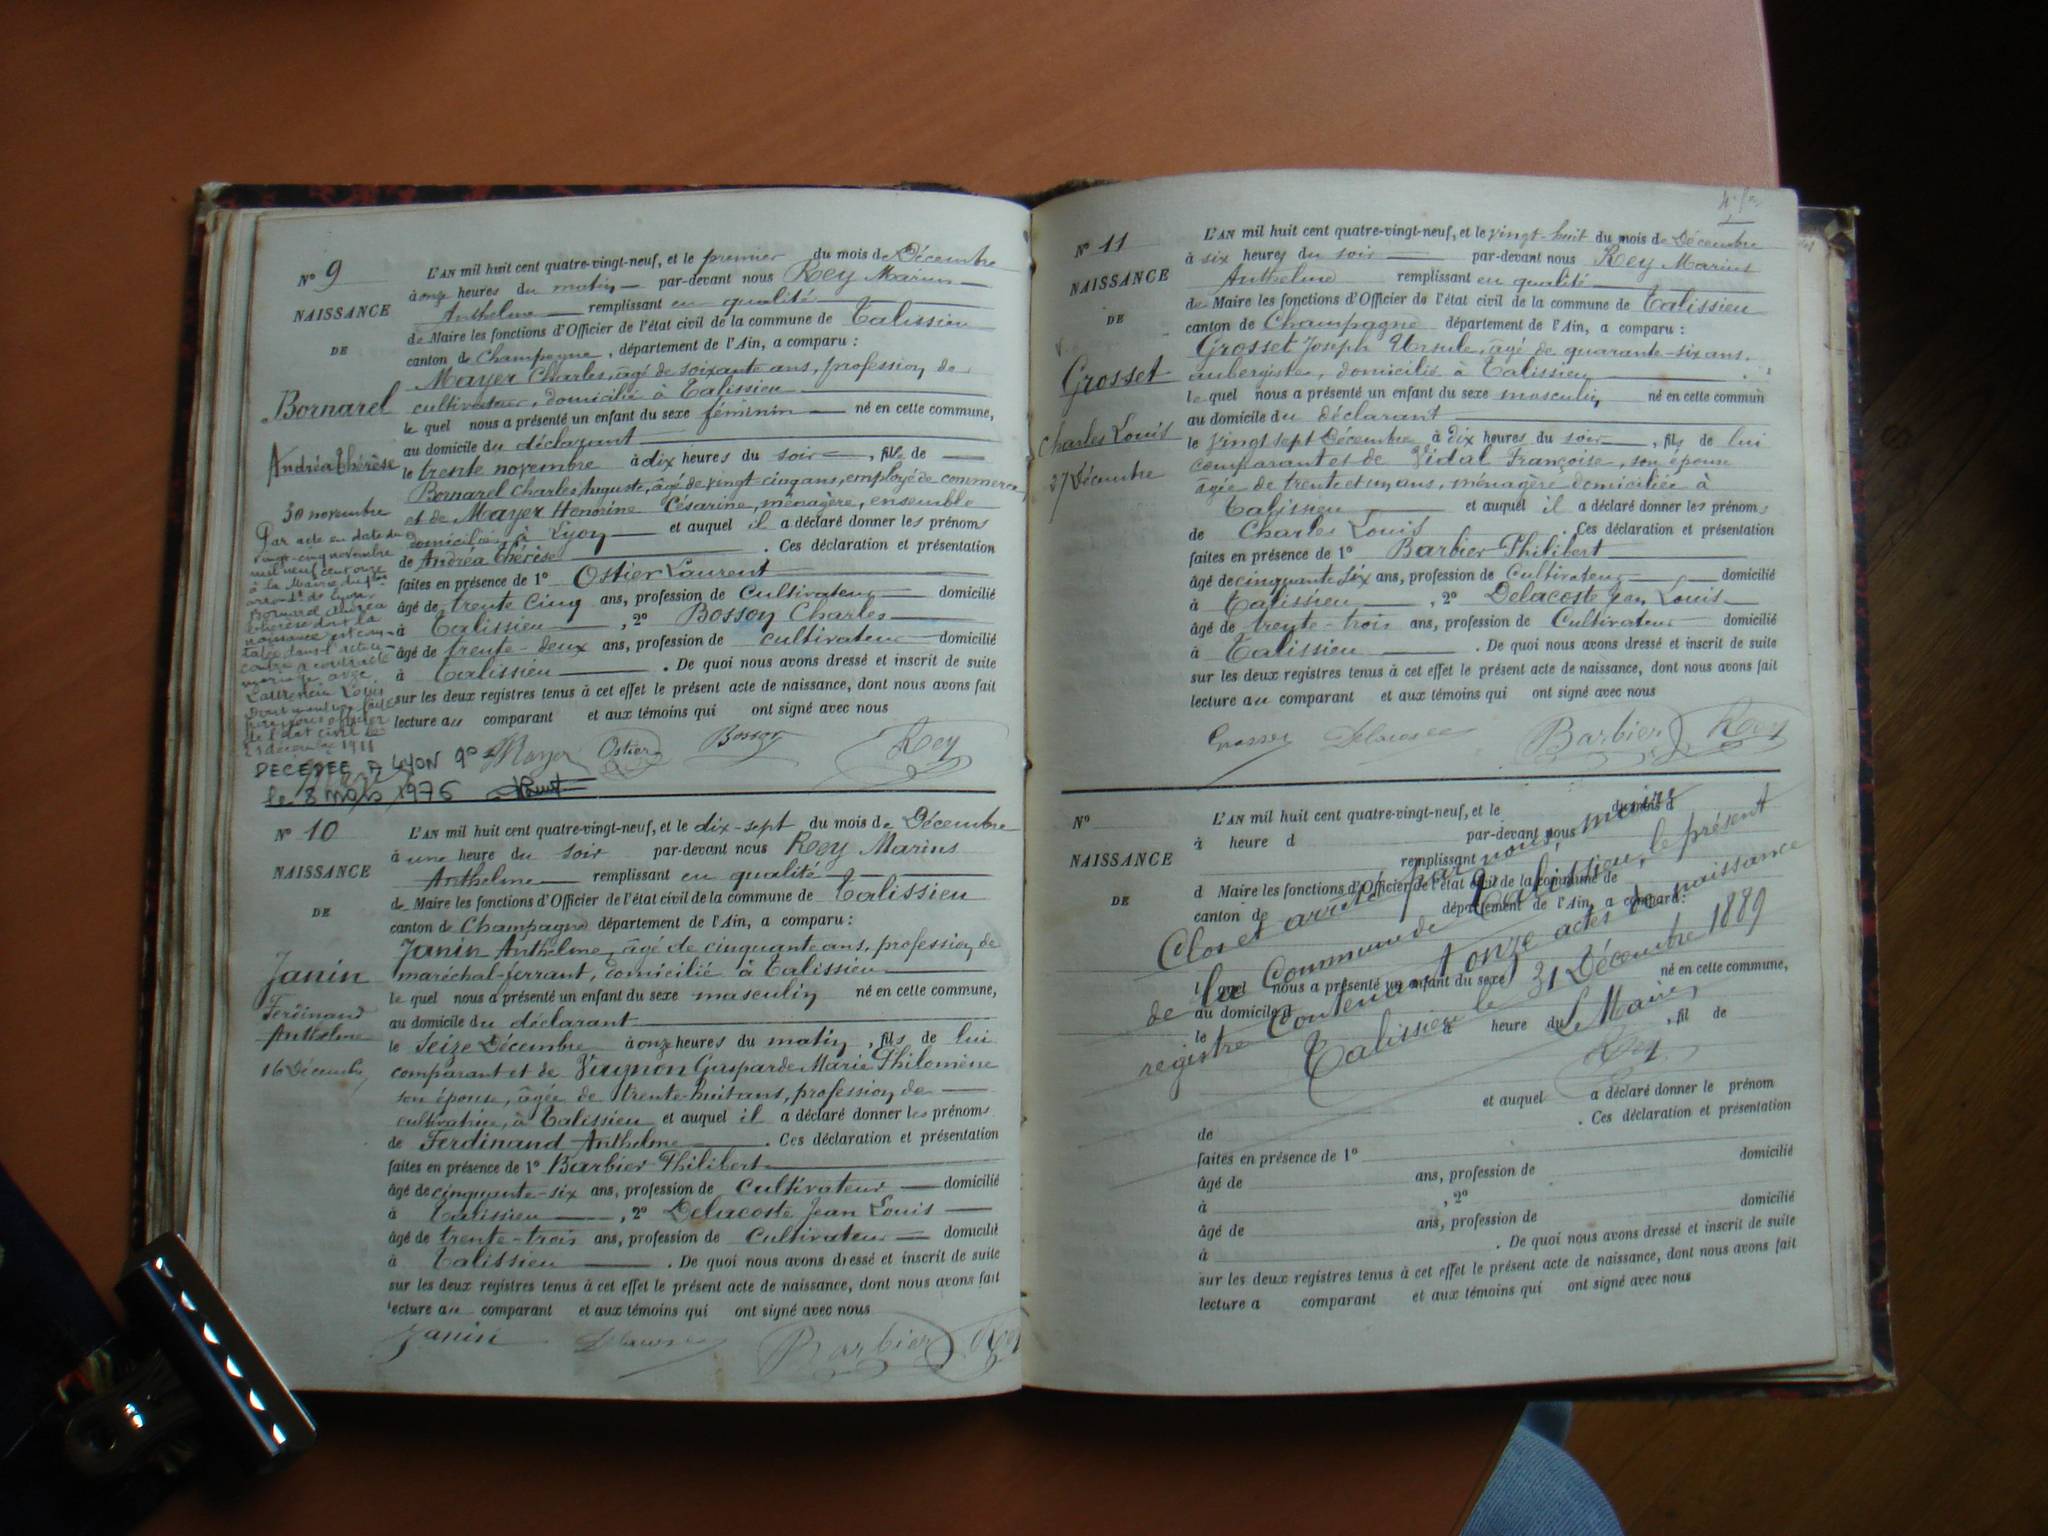 N° 9
NAISSANCE
DE
Bornarel
Andréa Thérèse
30 novembre
Par acte en date du
vingt-cinq novembre
mil neuf cent onze
à la Mairie du
arrondt de Lyon
Bornarel Andréa
Thérèse dont la
naissance est cons-
tatée dans l'acte ci-
contre a contracté
mariage avec
Laurencin Louis
Dont mention faite
par nous officier
de l'état civil le
décembre 1911
DECEDEE A LYON 9e
le 8 mars 1976
L'AN mil huit cent quatre-vingt-neuf, et le premier du mois de Décembre
à onze heures du matin par-devant nous Rey Marius
Anthelme remplissant en qualité
de Maire les fonctions d'Officier de l'état civil de la commune de Talissieu
canton de Champagne, département de l'Ain, a comparu :
Mayer Charles, âgé de soixante ans, profession de
cultivateur, domicilié à Talissieu
le quel nous a présenté un enfant du sexe féminin né en cette commune,
au domicile du déclarant
le trente novembre à dix heures du soir, fils de
Bornarel Charles Auguste, âgé de vingt cinq ans, employé de commerce
et de Mayer Honorine Césarine, ménagère, ensemble
domiciliés à Lyon et auquel il a déclaré donner les prénoms
de Andréa Thérèse. Ces déclaration et présentation
faites en présence de 1° Ostier Laurent
âgé de trente cinq ans, profession de Cultivateur domicilié
à Talissieu, 2° Bosson Charles
âgé de trente-deux ans, profession de cultivateur domicilié
à Talissieu. De quoi nous avons dressé et inscrit de suite
sur les deux registres tenus à cet effet le présent acte de naissance, dont nous avons fait
lecture au comparant et aux témoins qui ont signé avec nous
Mayer Ostier Bosson Rey
N° 10
NAISSANCE
DE
Janin
Ferdinand
Anthelme
16 Décembre
L'AN mil huit cent quatre-vingt-neuf, et le dix-sept du mois de Décembre
à une heure du soir par-devant nous Rey Marius
Anthelme remplissant en qualité
de Maire les fonctions d'Officier de l'état civil de la commune de Talissieu
canton de Champagne département de l'Ain, a comparu :
Janin Anthelme, âgé de cinquante ans, profession de
maréchal-ferrant, domicilié à Talissieu
le quel nous a présenté un enfant du sexe masculin né en cette commune,
au domicile du déclarant
le Seize Décembre à onze heures du matin, fils de lui
comparant et de Vugnon Gasparde Marie Philomène
son épouse, âgée de trente-huit ans, profession de
cultivatrice, à Talissieu et auquel il a déclaré donner les prénoms
de Ferdinand Anthelme. Ces déclaration et présentation
faites en présence de 1° Barbier Philibert
âgé de cinquante-six ans, profession de Cultivateur domicilié
à Talissieu, 2° Delacoste Jean Louis
âgé de trente-trois ans, profession de Cultivateur domicilié
à Talissieu. De quoi nous avons dressé et inscrit de suite
sur les deux registres tenus à cet effet le présent acte de naissance, dont nous avons fait
lecture au comparant et aux témoins qui ont signé avec nous
Janin Delacoste Barbier Rey
N° 11
NAISSANCE
DE
Grosset
Charles Louis
27 Décembre
L'AN mil huit cent quatre-vingt-neuf, et le vingt-huit du mois de Décembre
à six heures du soir par-devant nous Rey Marius
Anthelme remplissant en qualité
de Maire les fonctions d'Officier de l'état civil de la commune de Talissieu
canton de Champagne département de l'Ain, a comparu :
Grosset Joseph Ursule, âgé de quarante-six ans,
aubergiste, domicilié à Talissieu
le quel nous a présenté un enfant du sexe masculin né en cette commun
au domicile du déclarant
le vingt sept Décembre à dix heures du soir, fils de lui
comparant et de Vidal Françoise, son épouse
âgée de trente et un ans, ménagère domiciliée à
Talissieu et auquel il a déclaré donner les prénoms
de Charles Louis. Ces déclaration et présentation
faites en présence de 1° Barbier Philibert
âgé de cinquante six ans, profession de Cultivateur domicilié
à Talissieu, 2° Delacoste Jean Louis
âgé de trente-trois ans, profession de Cultivateur domicilié
à Talissieu. De quoi nous avons dressé et inscrit de suite
sur les deux registres tenus à cet effet le présent acte de naissance, dont nous avons fait
lecture au comparant et aux témoins qui ont signé avec nous
Grosset Delacoste Barbier Rey
N°
NAISSANCE
DE
L'AN mil huit cent quatre-vingt-neuf, et le du mois d
à heure d par-devant nous
remplissant
d Maire les fonctions d'Officier de l'état civil de la commune de
canton de département de l'Ain, a comparu :
l quel nous a présenté un enfant du sexe né en cette commune,
au domicile d
le à heure du , fil de
et auquel a déclaré donner le prénom
de . Ces déclaration et présentation
faites en présence de 1°
âgé de ans, profession de domicilié
à , 2°
âgé de ans, profession de domicilié
à . De quoi nous avons dressé et inscrit de suite
sur les deux registres tenus à cet effet le présent acte de naissance, dont nous avons fait
lecture a comparant et aux témoins qui ont signé avec nous
Clos et arrêté par nous, maire
de la Commune de Talissieu, le présent
registre Contenant onze actes de naissance
Talissieu le 31 Décembre 1889
Le Maire,
Rey